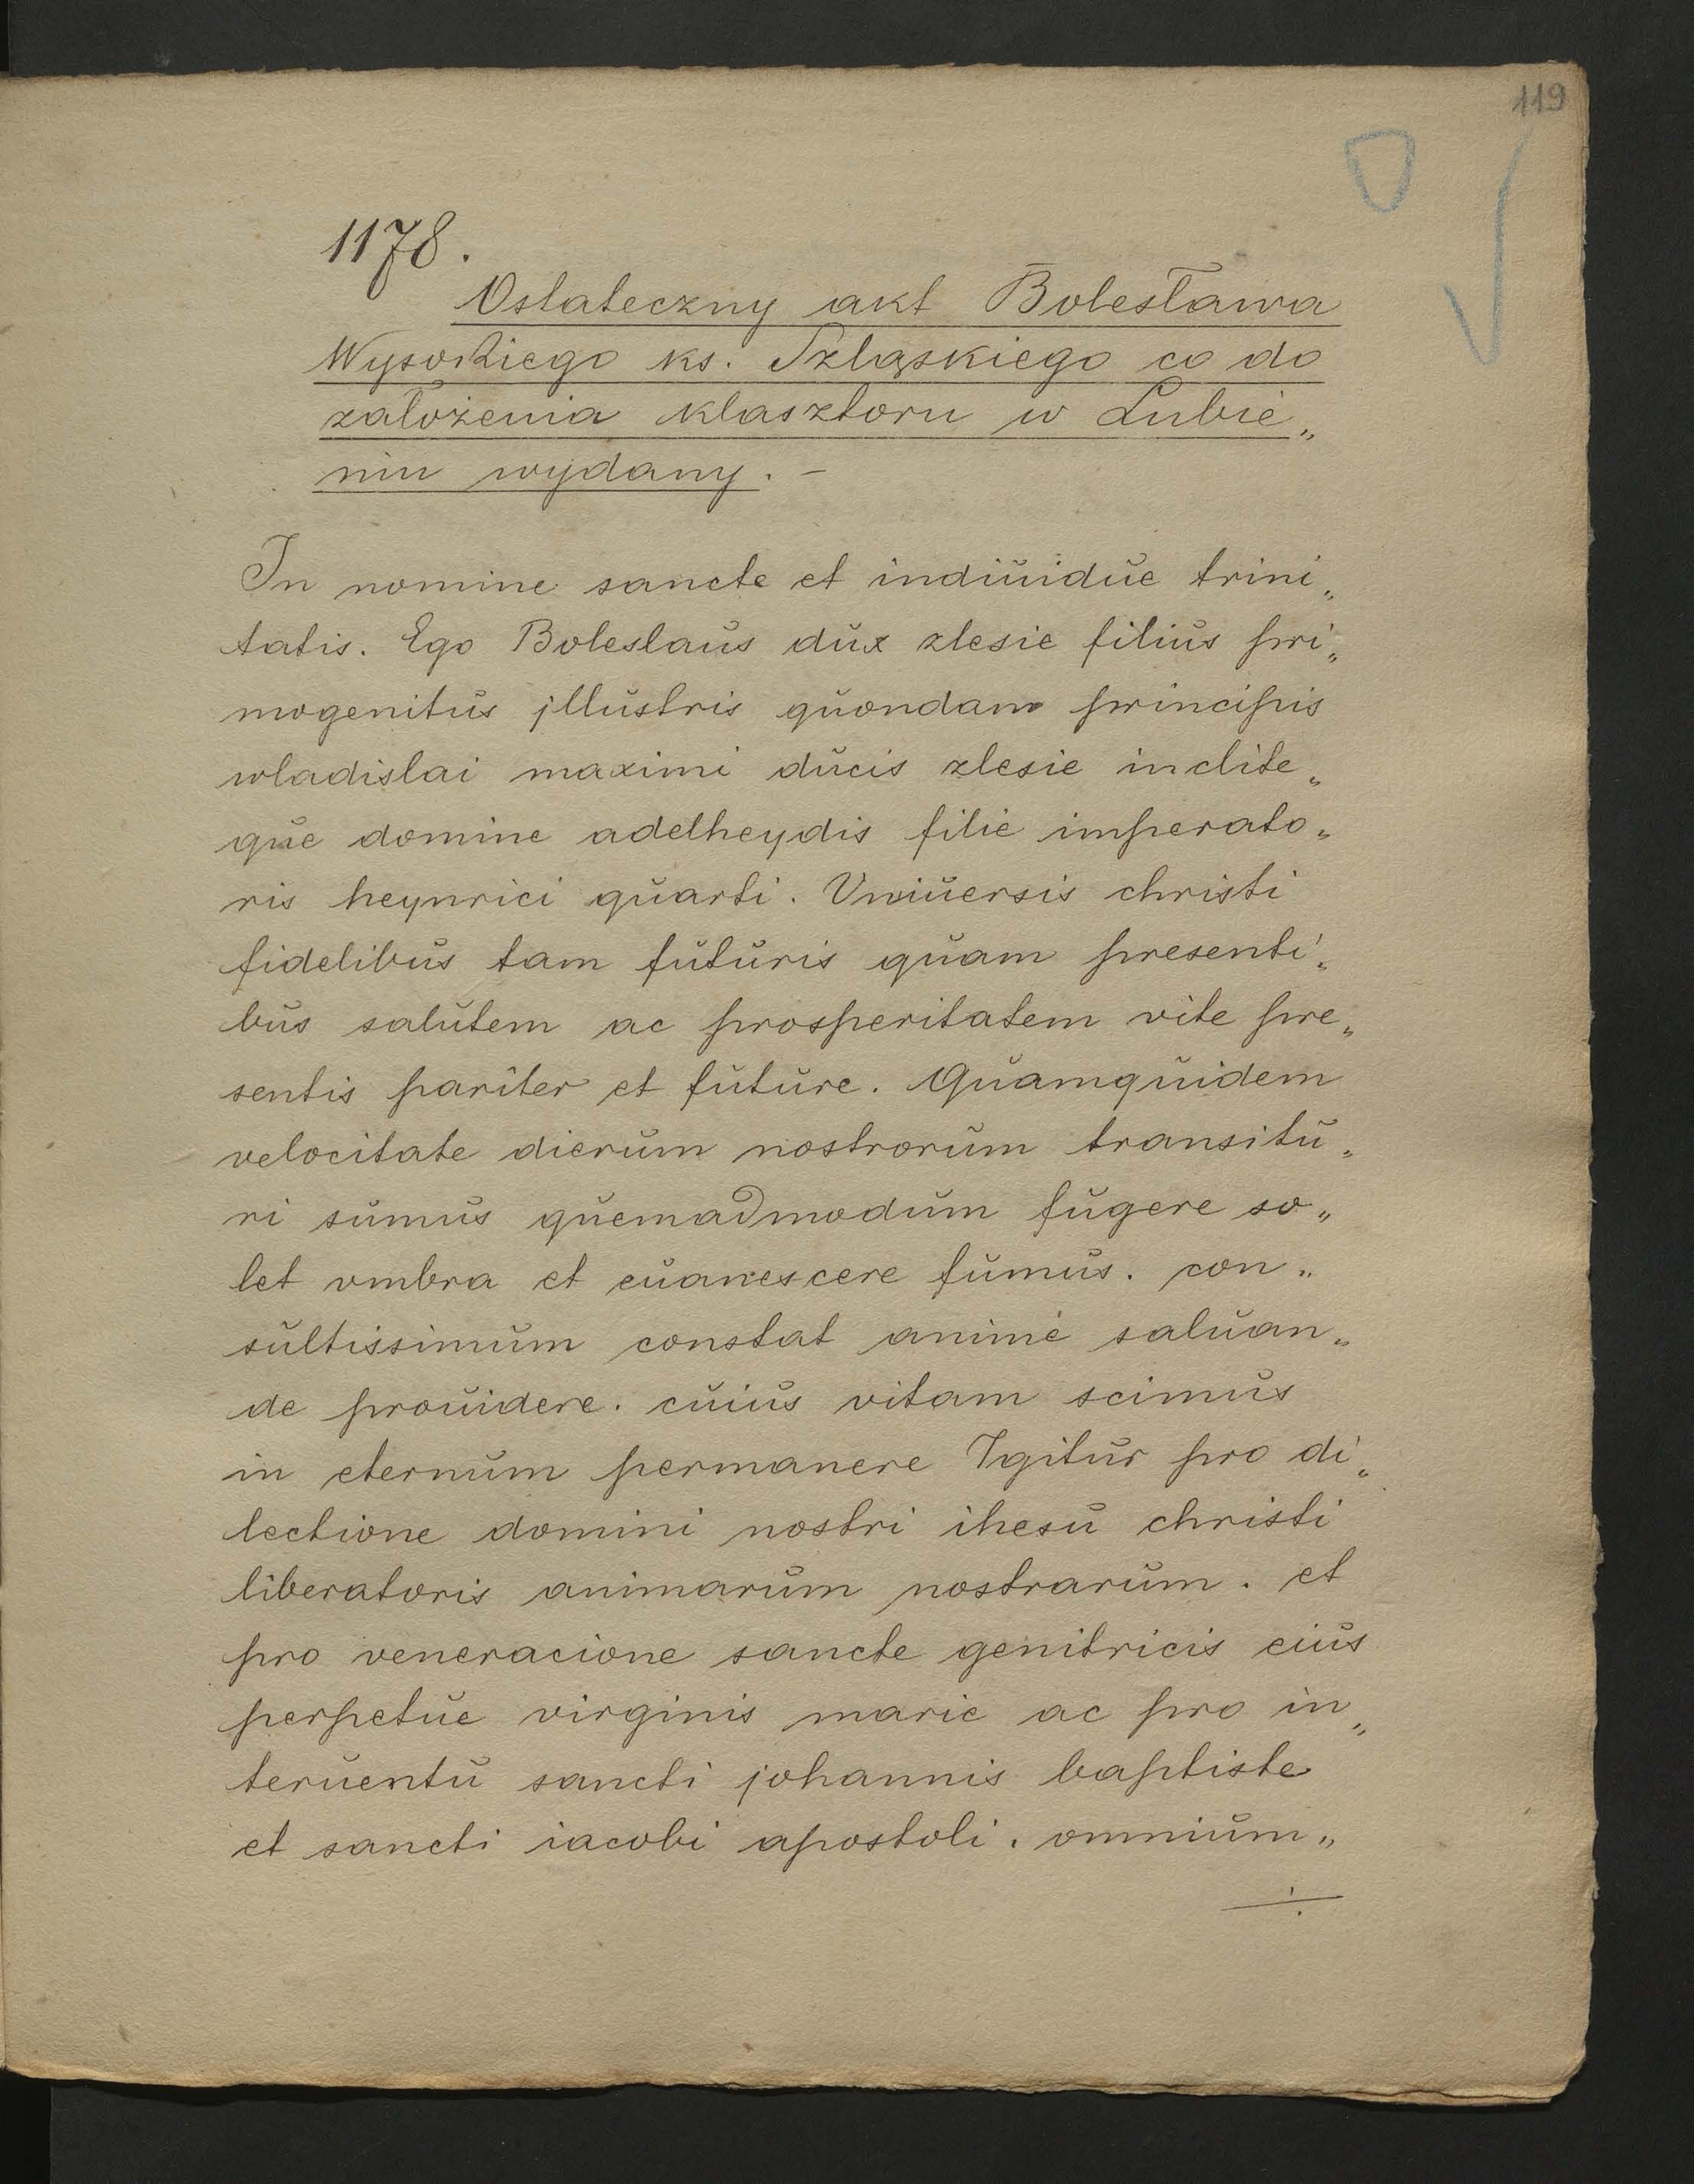 119
1178.
Ostateczny akt Bolesława
Wysokiego ks. Szląskiego co do
założenia klasztoru w Lubie„
niu wydany. –
In nomine sancte et indiuidue trini„
tatis. Ego Boleslaus dux zlesie filius pri„
mogenitus jllustris quondam principis
wladislai maximi ducis zlesie inclite„
que domine adelheydis filie imperato„
ris heynrici quarti. Vniuersis christi
fidelibus tam futuris quam presenti„
bus salutem ac prosperitatem vite pre„
sentis pariter et future. Quamquidem
velocitate dierum nostrorum transitu„
ri sumus quemadmodum fugere so„
let vmbra et euanescere fumus. con„
sultissimum constat anime saluan„
de prouidere. cuius vitam scimus
in eternum permanere Igitur pro di„
lectione domini nostri ihesu christi
liberatoris animarum nostrarum. et
pro veneracione sancte genitricis eius
perpetue virginis marie ac pro in„
teruentu sancti johannis baptiste
et sancti iacobi apostoli. omnium„